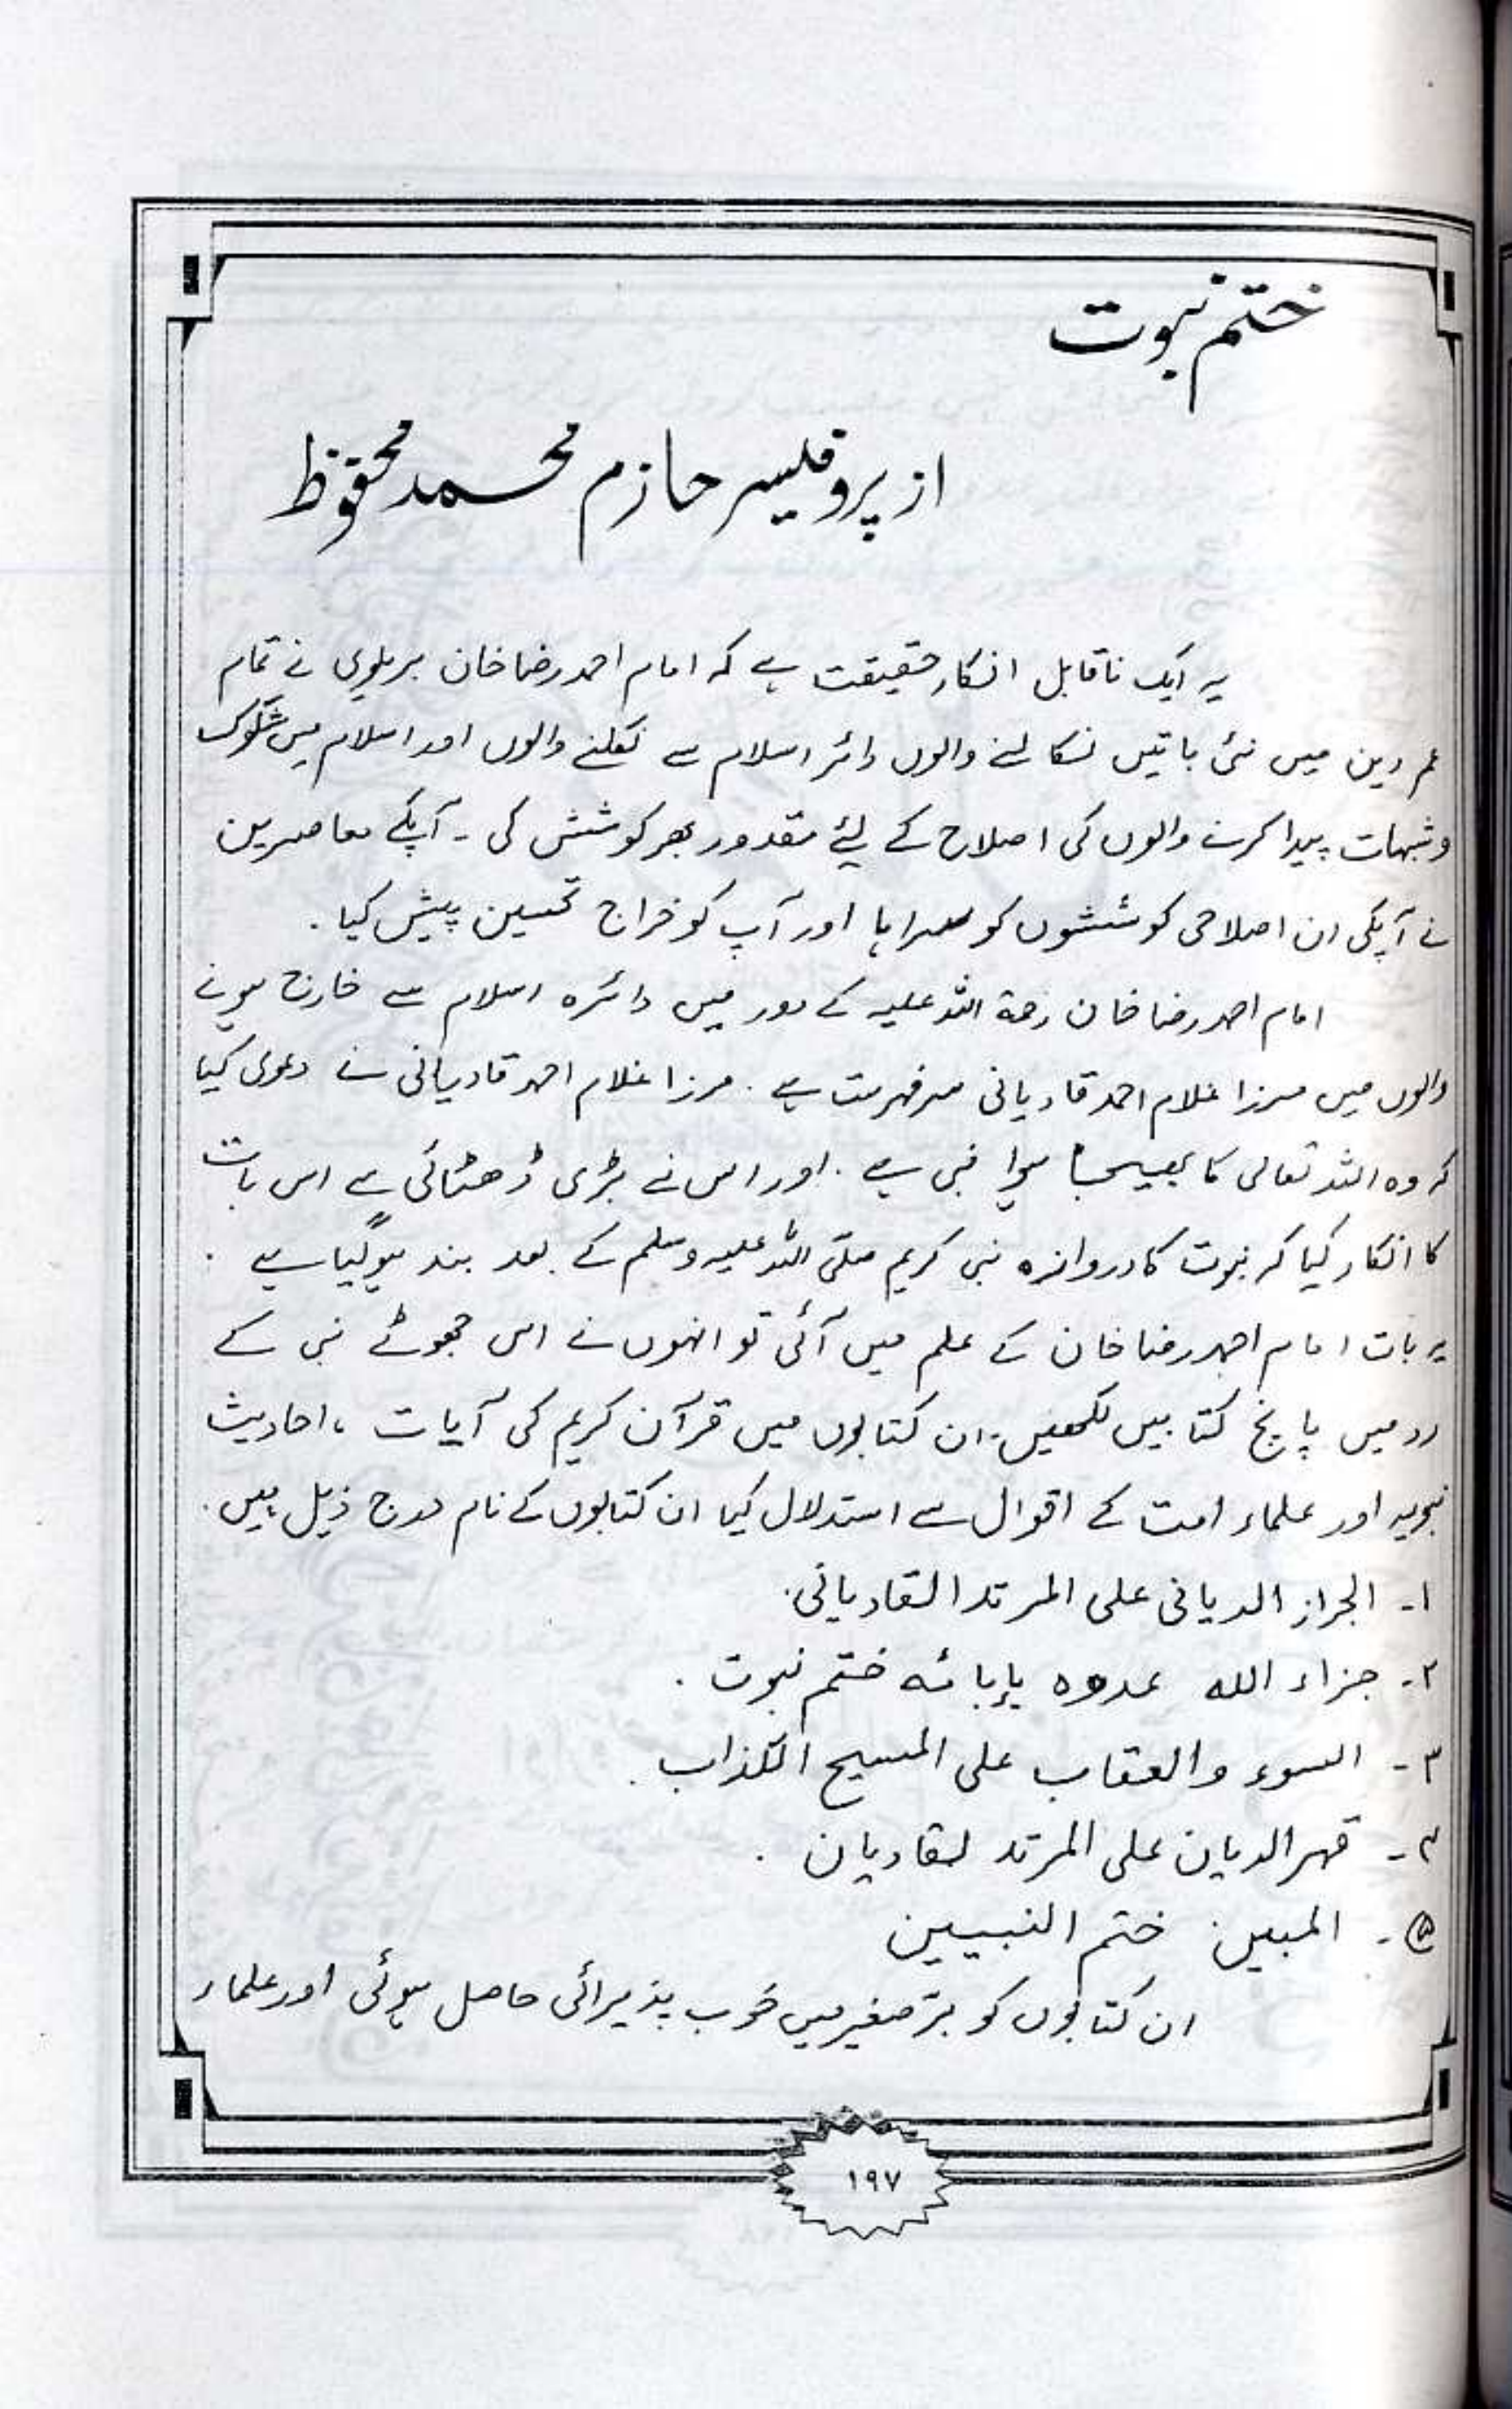 ختم نبوت
از پروفلیسر حازم محمد محفوظ
یہ ایک ناقابل انکار حقیقت ہے کہ امام احمد رضا خان بریلوی نے تمام
عمر دین میں نئی باتیں نکالنے والوں دائر اسلام سے نکلنے والوں اور اسلام میں شکوک
و شبہات پیدا کرنے والوں کی اصلاح کے لیے مقدور بھر کوشش کی ۔ آپکے معاصرین
نے آپکی ان اصلاحی کوششوں کو سراہا اور آپ کو خراج تحسین پیش کیا ۔
امام احمد رضا خان رحمۃ اللہ علیہ کے دور میں دائرہ اسلام سے خارج ہونے
والوں میں مرزا غلام احمد قادیانی سرفہرست ہے ۔ مرزا غلام احمد قادیانی نے دعوی کیا
کہ وہ اللہ تعالی کا بھیجا ہوا نبی ہے ۔ اور اس نے بڑی ڈھٹائی سے اس بات
کا انکار کیا کہ نبوت کا دروازہ نبی کریم صلی اللہ علیہ وسلم کے بعد بند ہوگیا ہے ۔
یہ بات امام احمد رضا خان کے علم میں آئی تو انہوں نے اس جھوٹے نبی کے
رد میں پانچ کتابیں لکھیں۔ ان کتابوں میں قرآن کریم کی آیات ، احادیث
نبویہ اور علماء امت کے اقوال سے استدلال کیا ان کتابوں کے نام درج ذیل ہیں ۔
۱۔ الجراز الدیانی علی المرتد القادیانی ۔
۲۔ جزاء اللہ عدوہ بإبائہ ختم نبوت ۔
۳۔ السوء والعقاب علی المسیح الکذاب ۔
۴۔ قہر الدیان علی المرتد لقادیان ۔
۵۔ المبین ختم النبیین
ان کتابوں کو برّصغیر میں خوب پذیرائی حاصل ہوئی اور علماء
۱۹۷